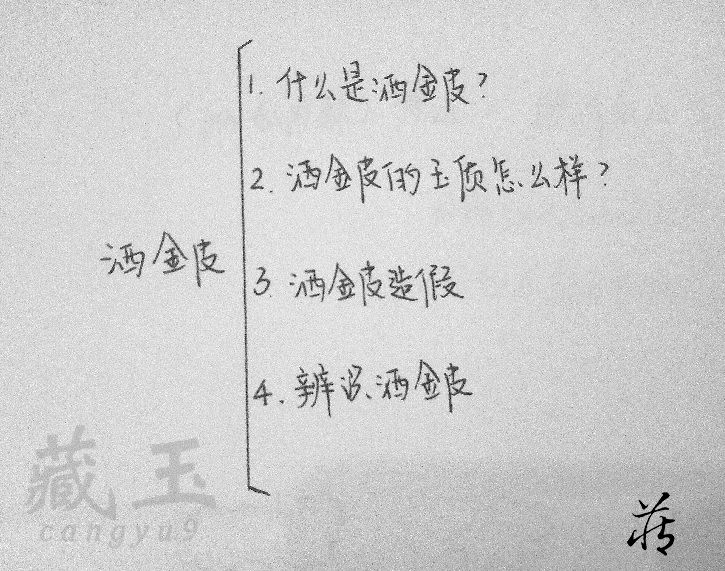 1. 什么是洒金皮?
2. 洒金皮的玉质怎么样?
洒金皮
3. 洒金皮造假
4. 辨识洒金皮
藏玉
cangyu9